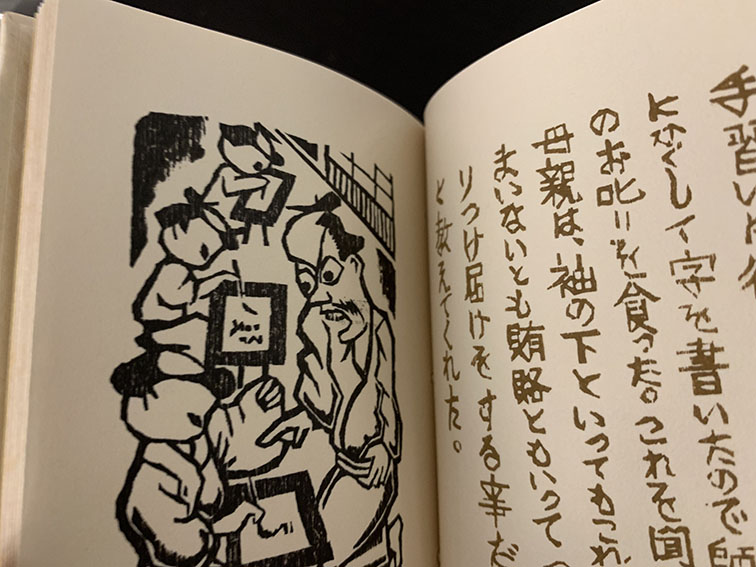 手習い
字を書いたので師
のお叱りを食った。これを聞
母親は、袖の下といってもこれ
まいないとも賄賂ともいって
りつけ届けをする事だ
と教えてくれた。